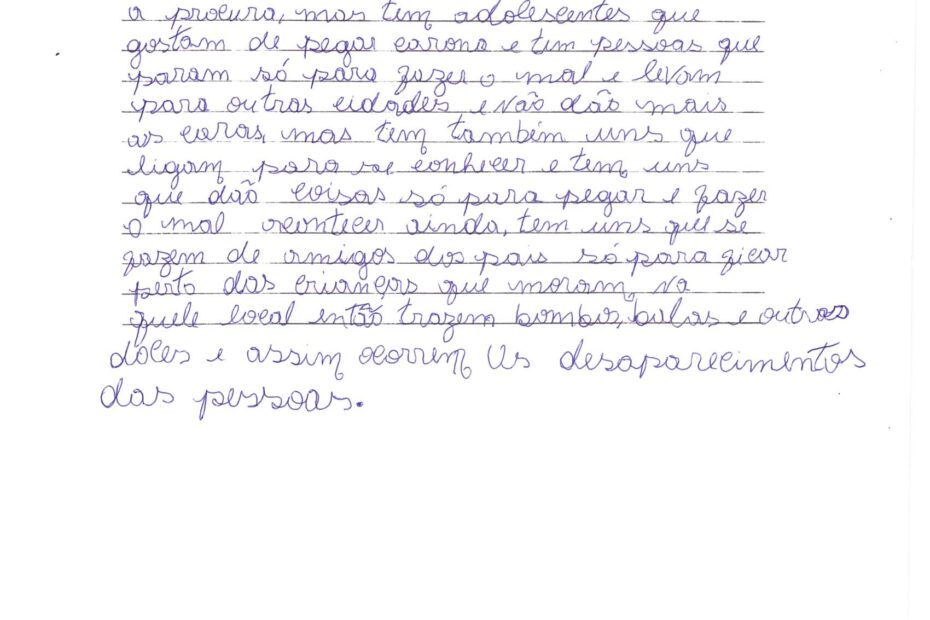 a procura, mas tem adolescentes que
gostam de pegar carona e tem pessoas que
param só para fazer o mal e levam
para outras cidades, e não dão mais
as caras, mas tem também uns que
ligam para se conhecer e tem uns
que dão coisas só para pegar e fazer
o mal acontecer ainda, tem uns que se
fazem de amigos dos pais só para ficar
perto das crianças que moram na
quele local então trazem bombos, balas e outros
doces e assim ocorrem Us desaparecimentos
das pessoas.